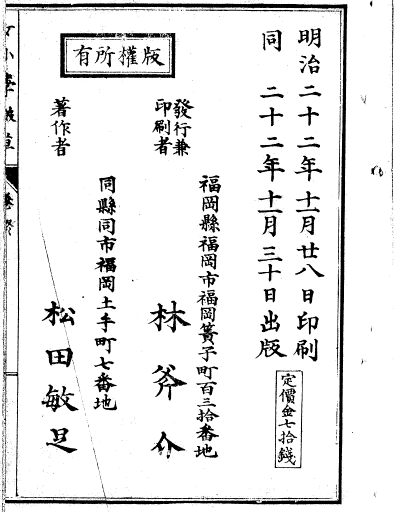 明治二十二年十一月廿八日印刷
同二十二年十一月三十日出版
定價金七拾錢
版權所有
發行兼
印刷者
福岡縣福岡市福岡簀子町百三拾番地
林斧介
著作者
同縣同市福岡土手町七番地
松田敏足